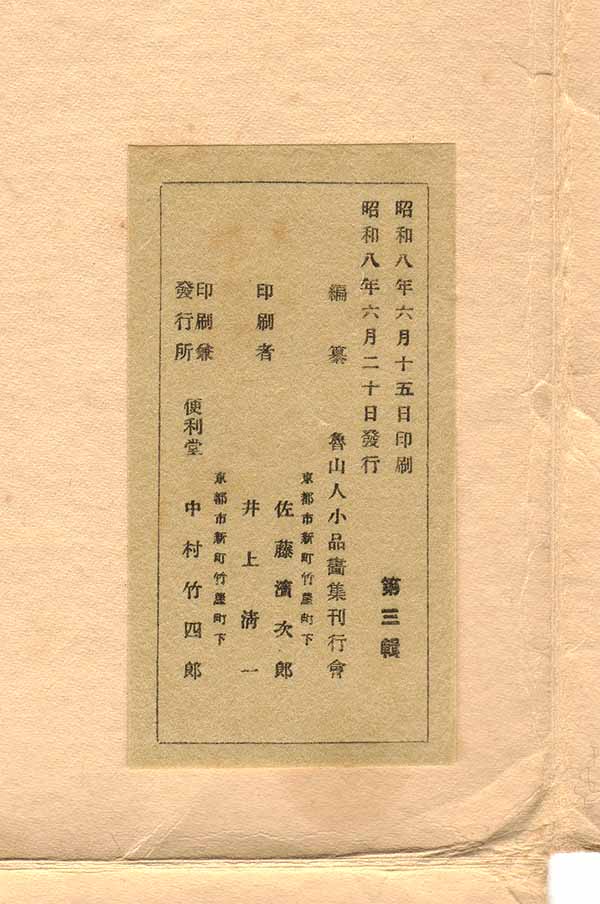 昭和八年六月十五日印刷
昭和八年六月二十日發行
第三輯
編纂 魯山人小品畵集刊行會
京都市新町竹屋町下
佐藤濱次郎
印刷者 井上清一
京都市新町竹屋町下
印刷兼
發行所 便利堂 中村竹四郎